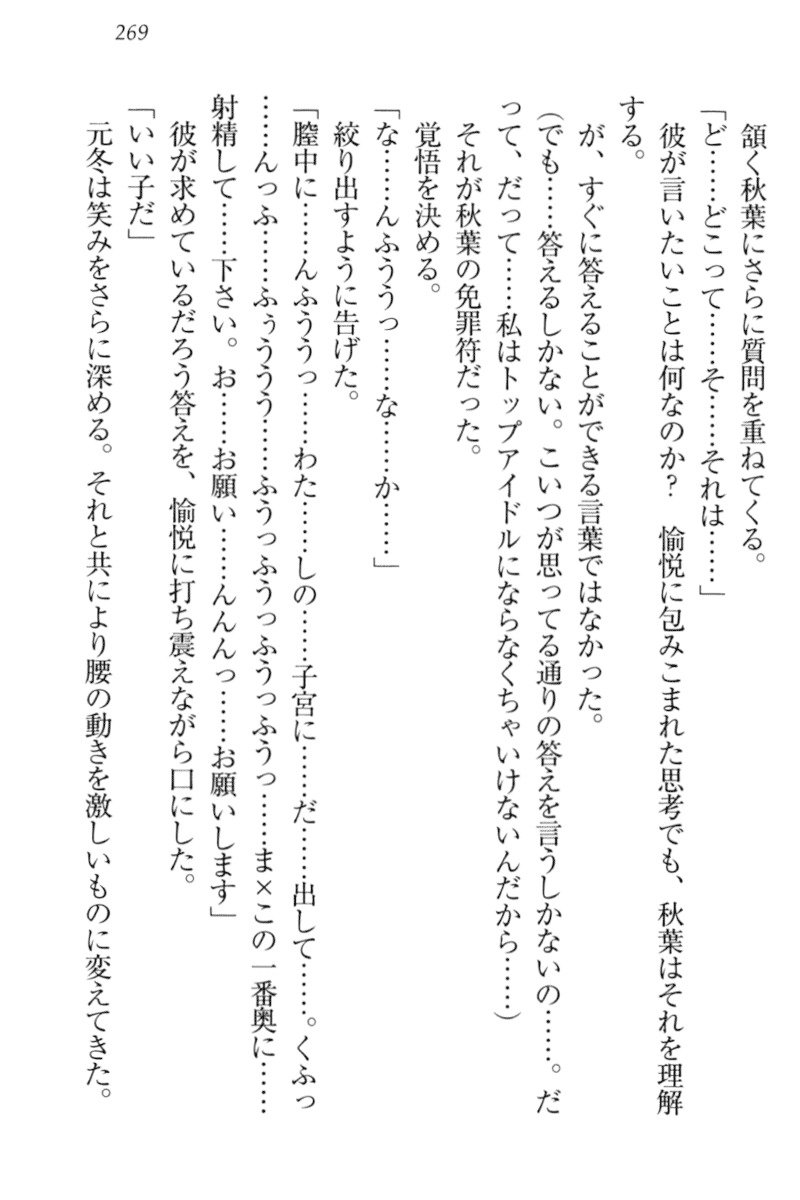 269
頷く秋葉にさらに質問を重ねてくる。
「ど……どこって……そ……それは……」
彼が言いたいことは何なのか？　愉悦に包みこまれた思考でも、秋葉はそれを理解
する。
が、すぐに答えることができる言葉ではなかった。
（でも……答えるしかない。こいつが思ってる通りの答えを言うしかないの……。だ
って、だって……私はトップアイドルにならなくちゃいけないんだから……）
それが秋葉の免罪符だった。
覚悟を決める。
「な……んふううっ……な……か……」
絞り出すように告げた。
「膣中に……んふううっ……わた……しの……子宮に……だ……出して……。くふっ
……んっふ……ふぅううう……ふうっふうっふうっふうっ……ま×この一番奥に……
射精して……下さい。お……お願い……んんんっ……お願いします」
彼が求めているだろう答えを、愉悦に打ち震えながら口にした。
「いい子だ」
元冬は笑みをさらに深める。それと共により腰の動きを激しいものに変えてきた。